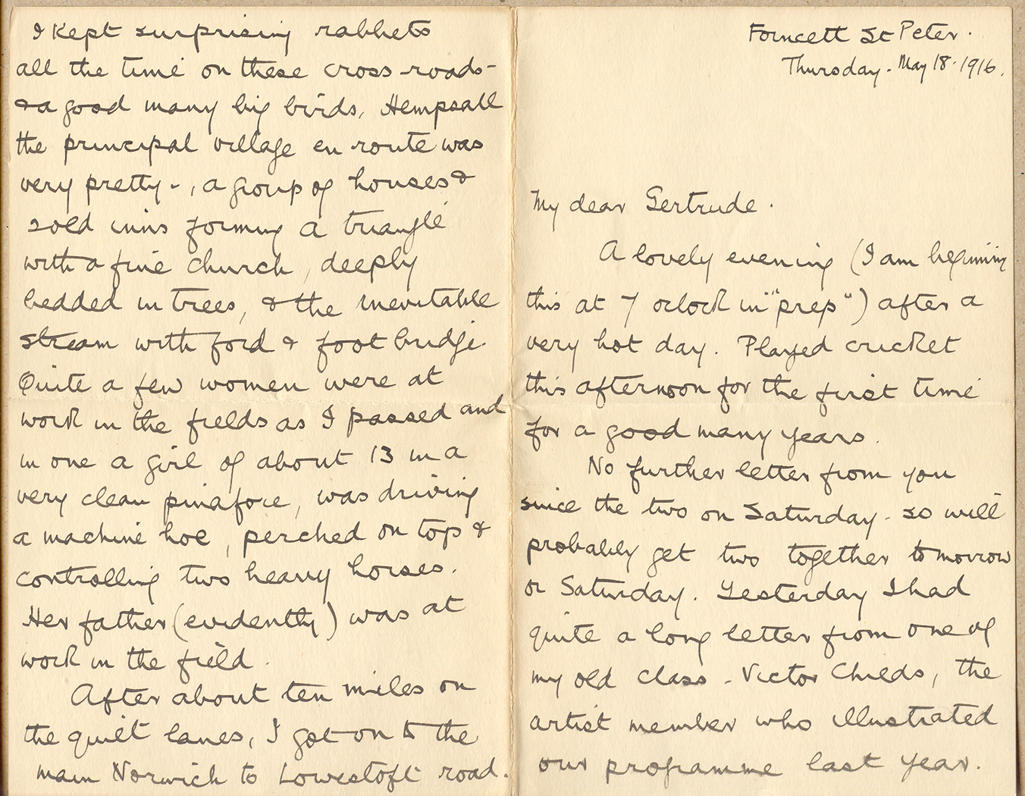 Forncett St Peter.
Thursday. May 18. 1916.
My dear Gertrude.
A lovely evening (I am beginning
this at 7 oclock in "prep") after a
very hot day. Played cricket
this afternoon for the first time
for a good many years.
No further letter from you
since the two on Saturday - so will
probably get two together tomorrow
or Saturday. Yesterday I had
quite a long letter from one of
my old class - Victor Childs, the
artist member who illustrated
our programme last year.
I kept surprising rabbits
all the time on these cross-roads -
& a good many big birds. Hempsall
the principal village en route was
very pretty -, a group of houses &
old inns forming a triangle
with a fine church, deeply
bedded in trees, & the inevitable
stream with ford & foot bridge.
Quite a few women were at
work in the fields as I passed and
in one a girl of about 13 in a
very clean pinafore, was driving
a machine hoe, perched on top &
controlling two heavy horses.
Her father (evidently) was at
work in the field.
After about ten miles on
the quiet lanes, I got on to the
main Norwich to Lowestoft road.